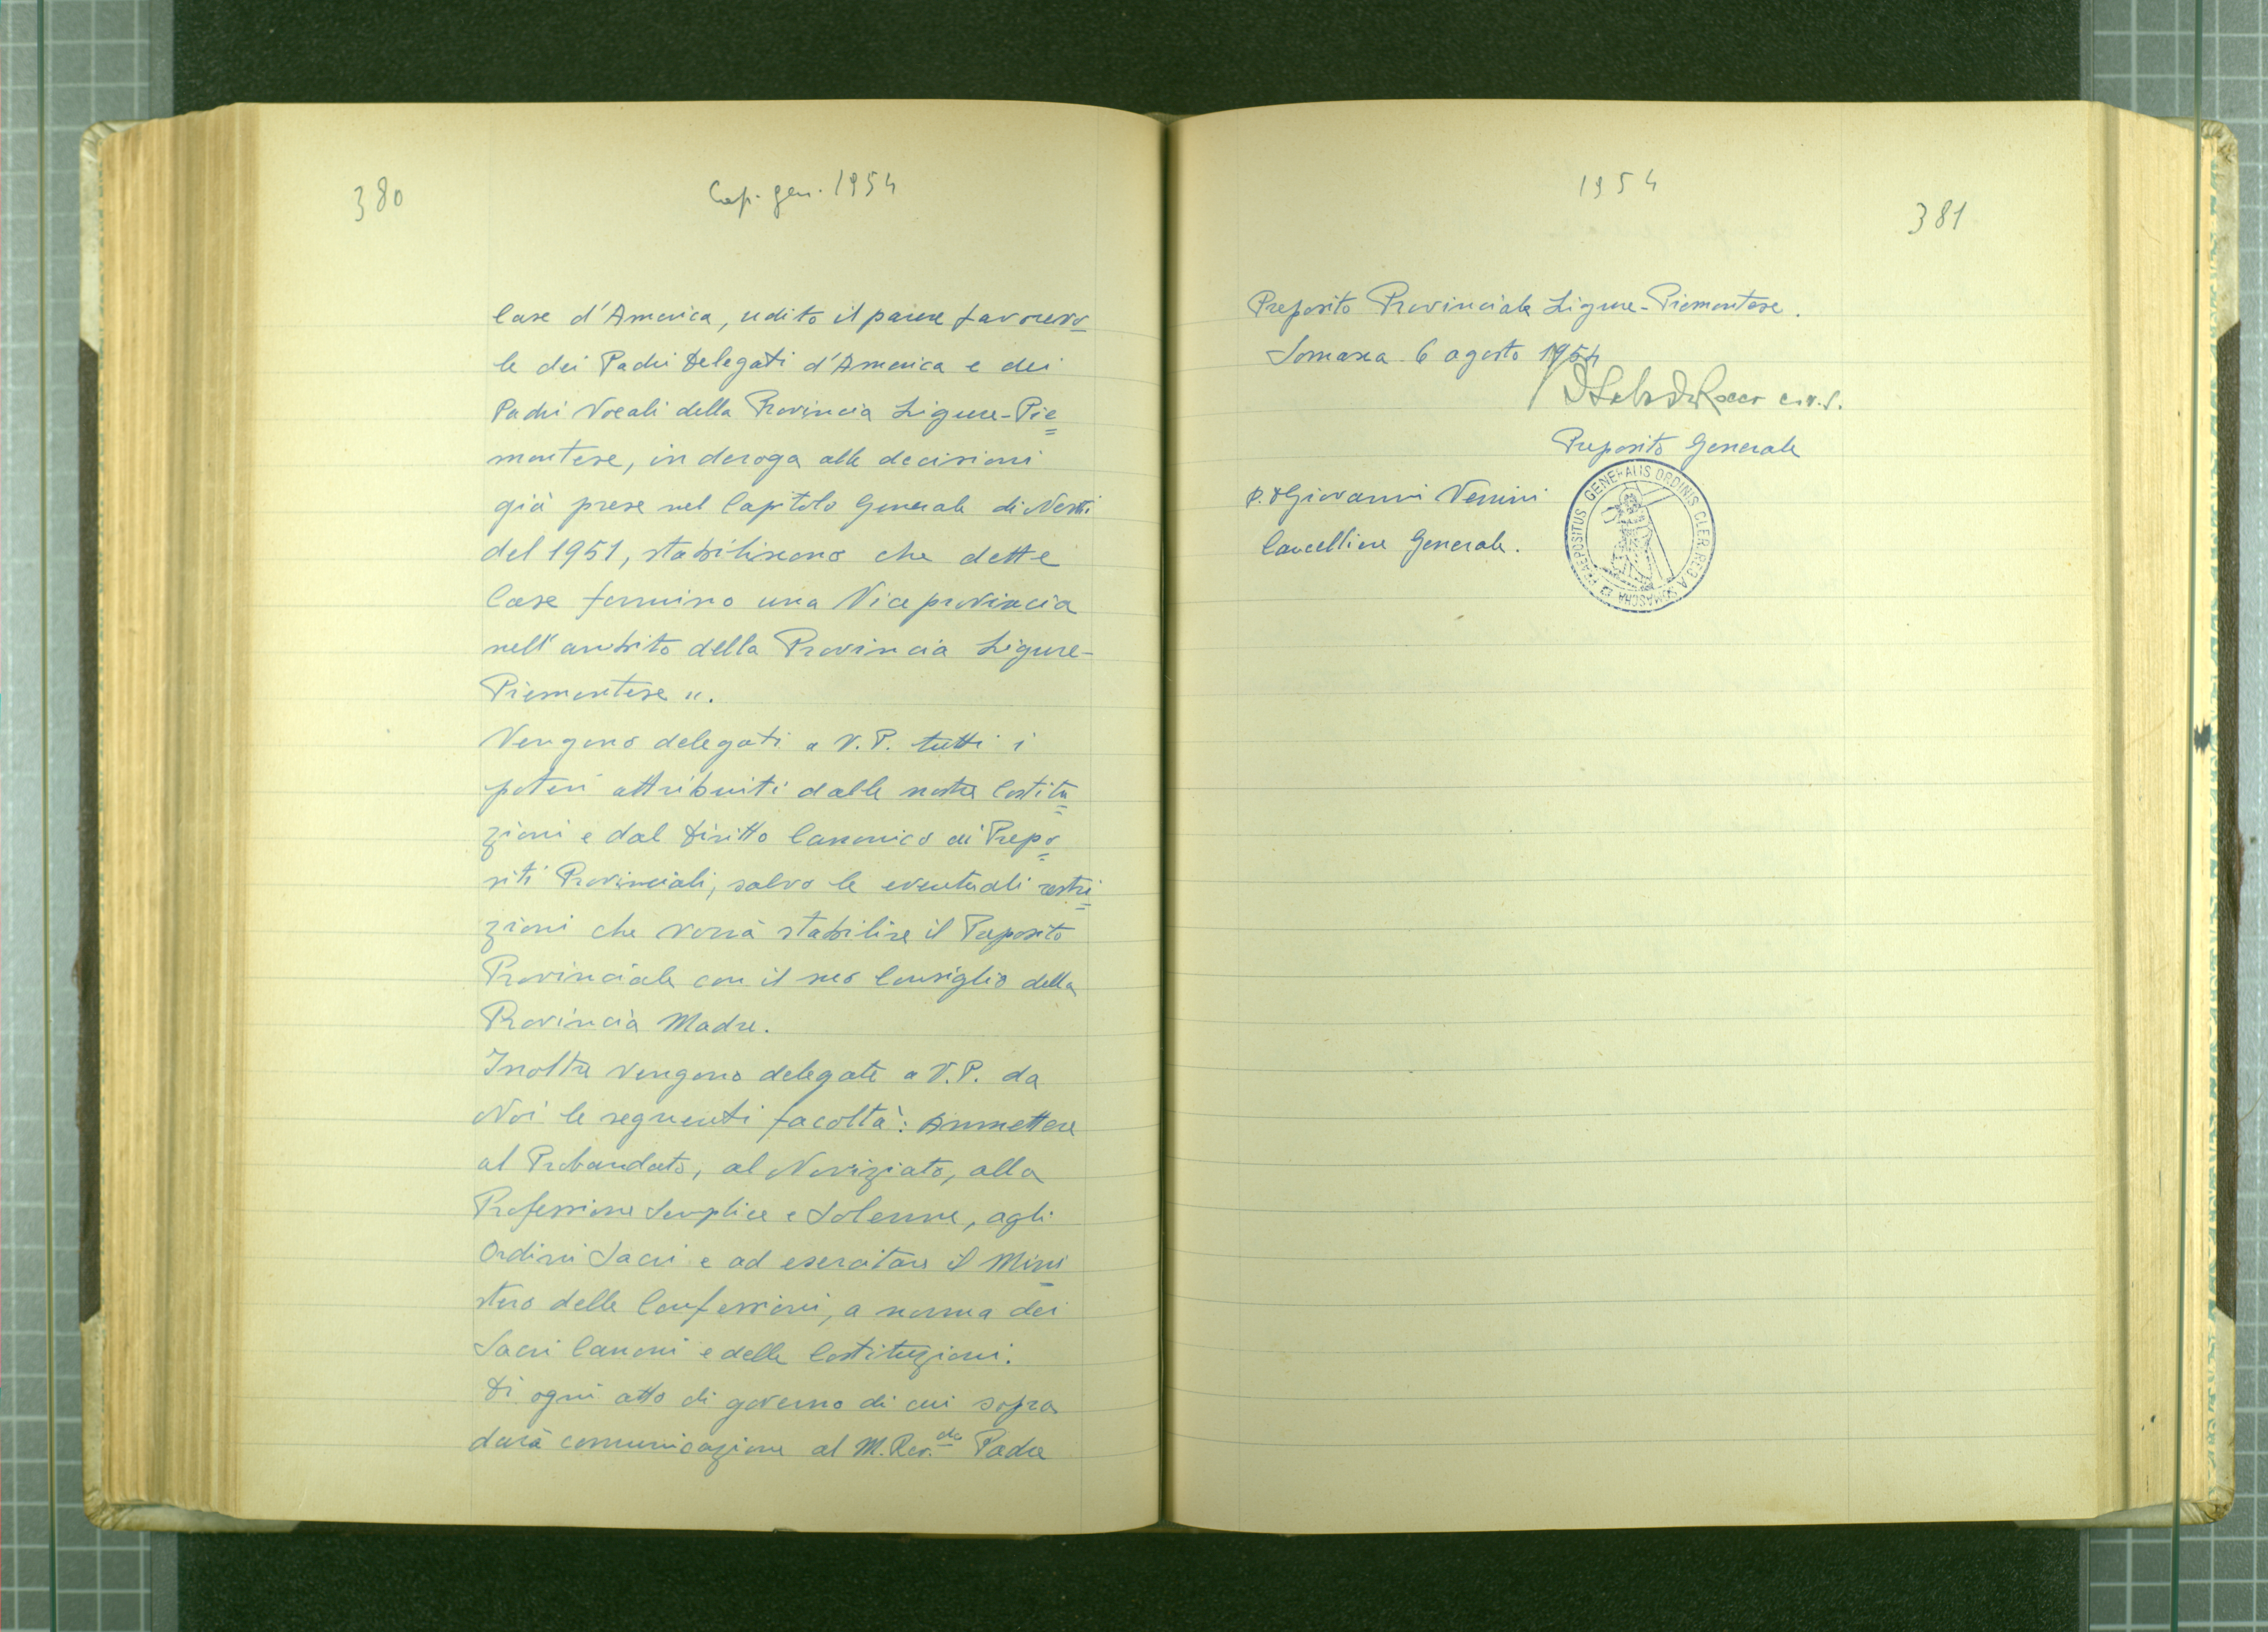 380
Cap. gen. 1954
Case d'America, udito il parere favorevo
le dei Padri Delegati d'America e dei
Padri Vocali della Provincia Ligure-Pie
montese, in deroga alle decisioni
già prese nel Capitolo Generale di Nervi
del 1951, stabiliscono che dette
Case formino una Viceprovincia
nell'ambito della Provincia Ligure-
Piemontese ".
Vengono delegati a V.P. tutti i
poteri attribuiti dalle nostre Costitu
zioni e dal Diritto Canonico ai Prepo
siti Provinciali, salvo le eventuali restri
zioni che vorrà stabilire il Preposito
Provinciale con il suo Consiglio della
Provincia Madre.
Inoltre vengono delegate a V.P. da
Noi le seguenti facoltà: Ammettere
al Probandato, al Noviziato, alla
Professione Semplice e Solenne, agli
Ordini Sacri e ad esercitare il Mini
stero delle Confessioni, a norma dei
Sacri Canoni e delle Costituzioni.
Di ogni atto di governo di cui sopra
darà comunicazione al M. Rev.do Padre
1954
381
Preposito Provinciale Ligure-Piemontese.
Somasca 6 agosto 1954
Rocco c.r.s.
Preposito Generale
P. D Giovanni Venini
Cancelliere Generale.
PRAEPOSITUS GENERALIS ORDINIS CLER. REG. A SOMASCHA